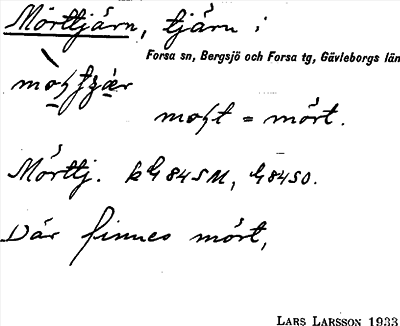 Mörttjärn, tjärn i
Forsa sn, Bergsjö och Forsa tg, Gävleborgs län
= mört.
Mörttj. k G 84 SM, G 84 SO.
Där finnes mört,
LARS LARSSON 1933